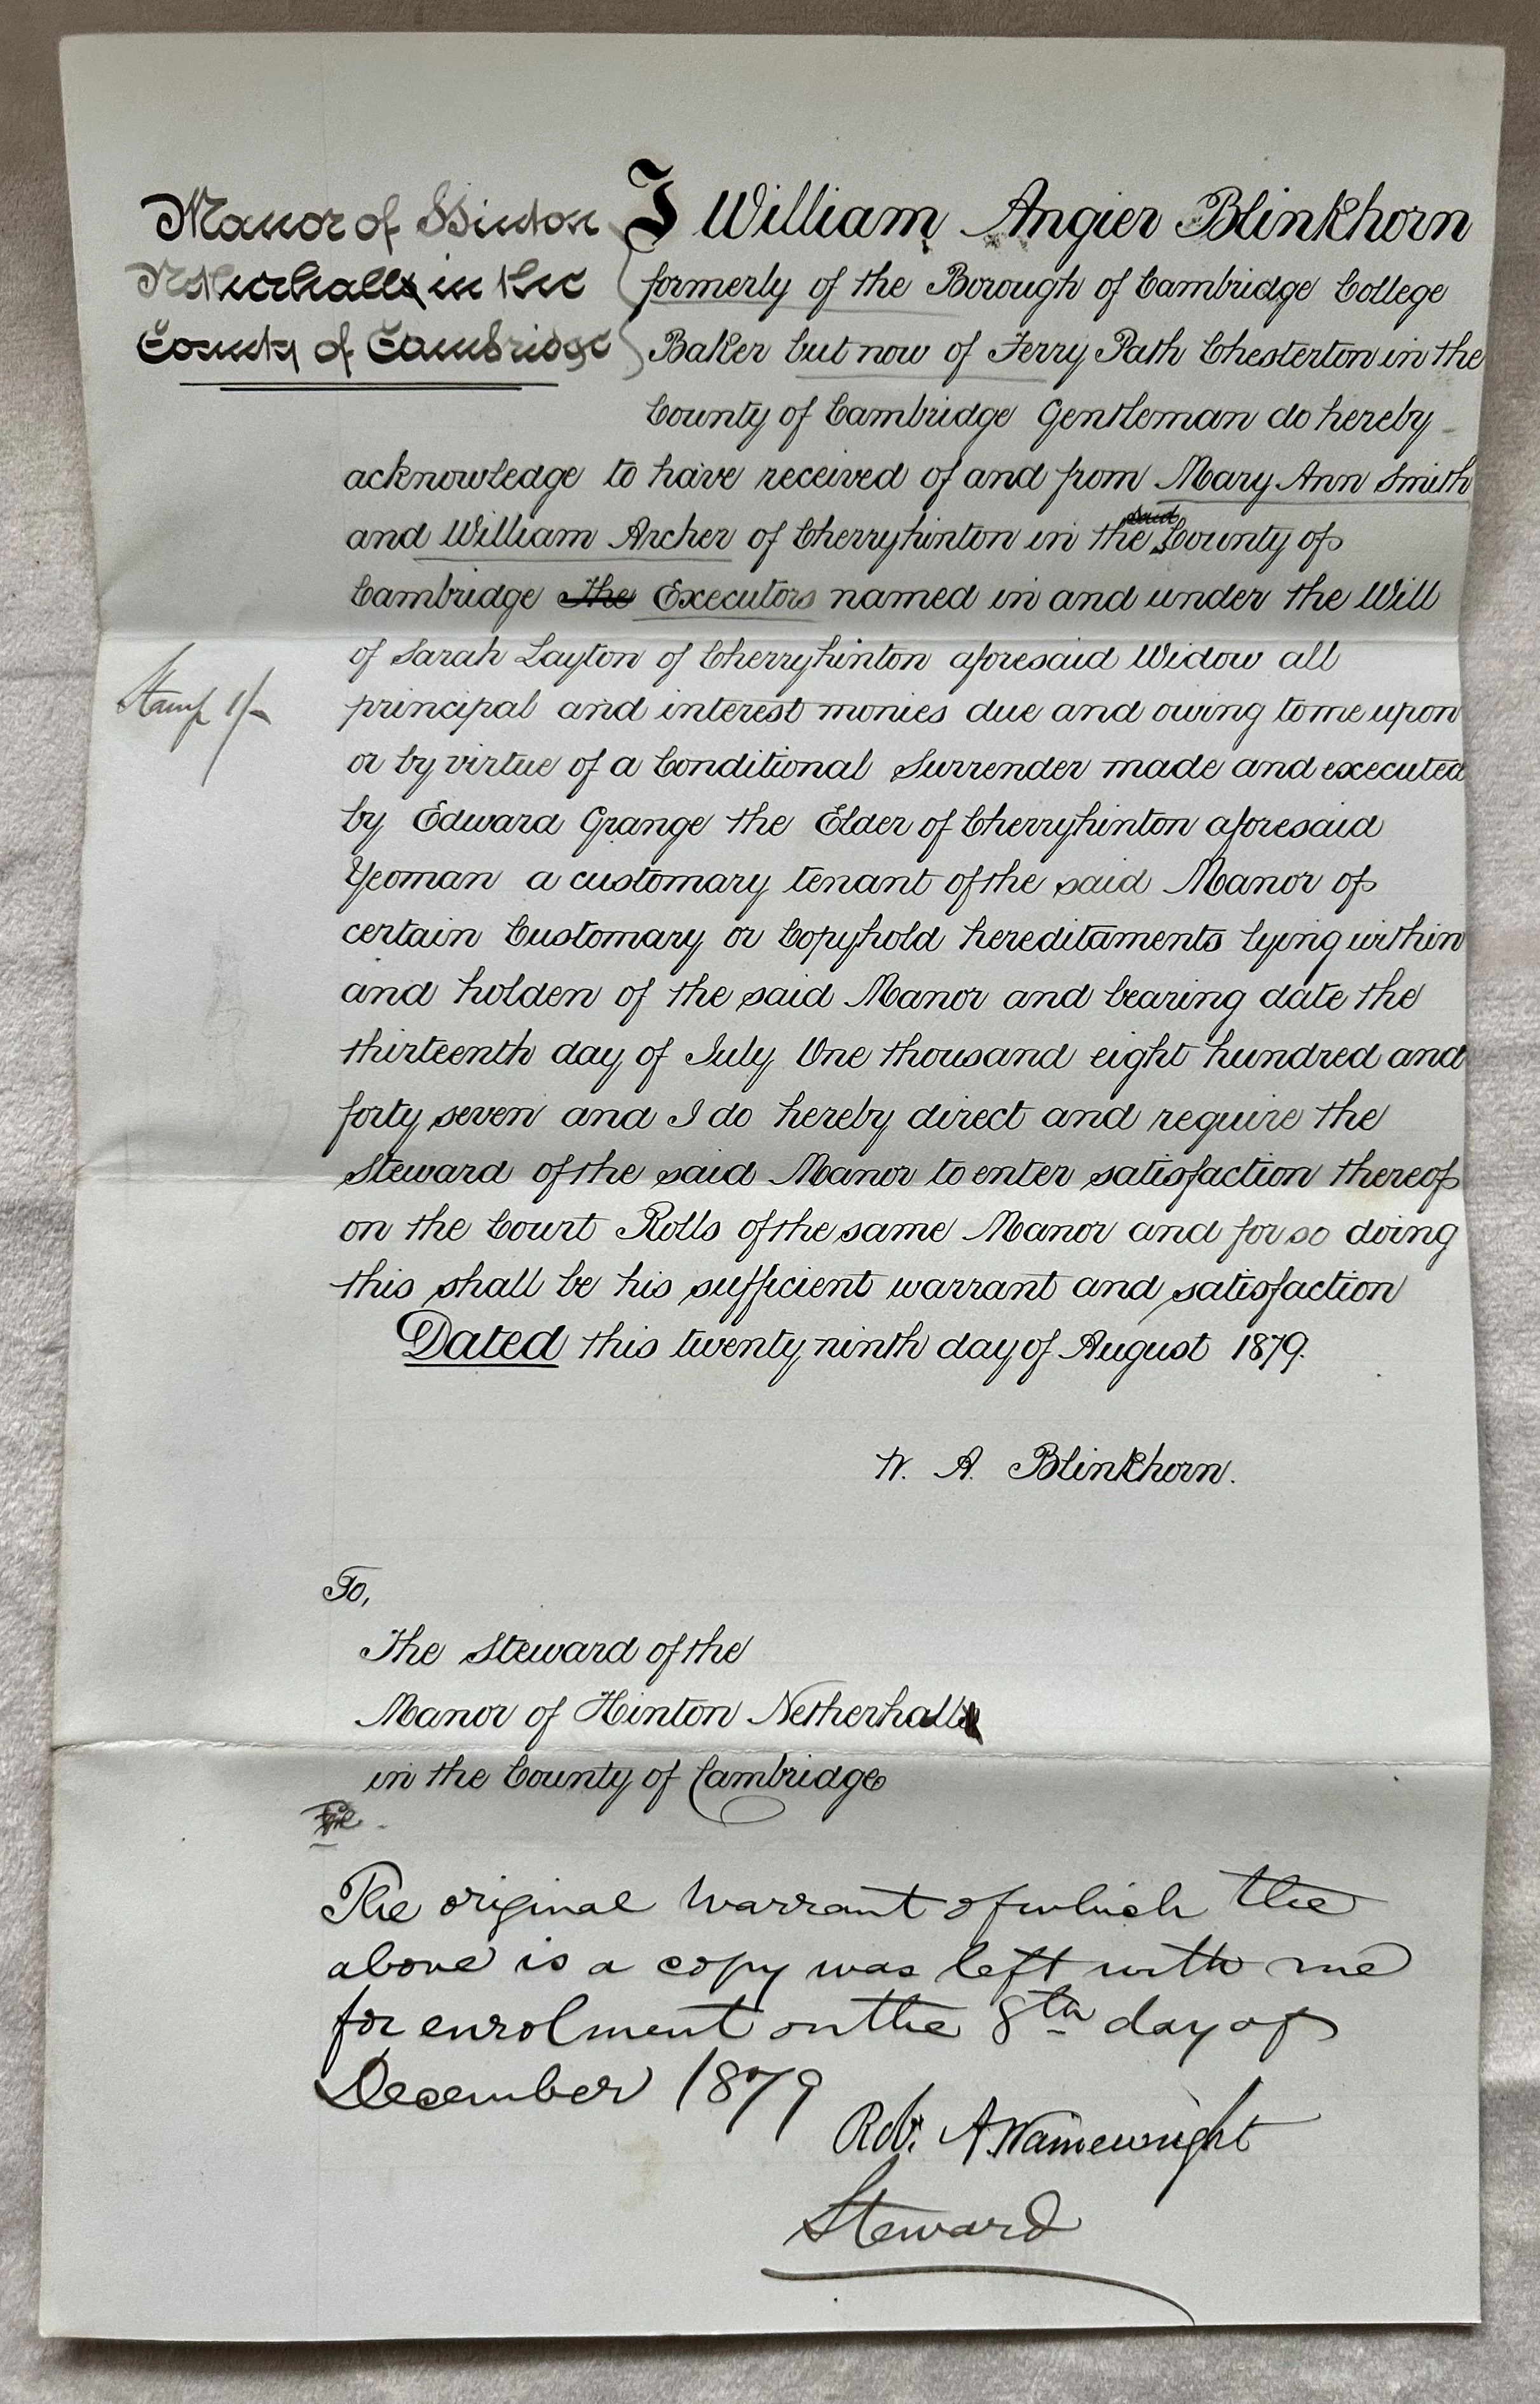 Manor of Hinton
Netherhall in the
County of Cambridge
I William Angier Blinkhorn
formerly of the Borough of Cambridge College
Baker but now of Ferry Path Chesterton in the
County of Cambridge Gentleman do hereby
acknowledge to have received of and from Mary Ann Smith
and William Archer of Cherryhinton in the said County of
Cambridge the Executors named in and under the Will
of Sarah Layton of Cherryhinton aforesaid Widow all
Stamp 1/-
principal and interest monies due and owing to me upon
or by virtue of a Conditional Surrender made and executed
by Edward Grange the Elder of Cherryhinton aforesaid
Yeoman a customary tenant of the said Manor of
certain Customary or Copyhold hereditaments lying within
and holden of the said Manor and bearing date the
thirteenth day of July One thousand eight hundred and
forty seven and I do hereby direct and require the
Steward of the said Manor to enter satisfaction thereof
on the Court Rolls of the same Manor and for so doing
this shall be his sufficient warrant and satisfaction
Dated this twenty ninth day of August 1879.
W. A. Blinkhorn.
To,
The Steward of the
Manor of Hinton Netherhall
in the County of Cambridge
The original Warrant of which the
above is a copy was left with me
for enrolment on the 8th day of
December 1879
Rob. A. Wainewright
Steward